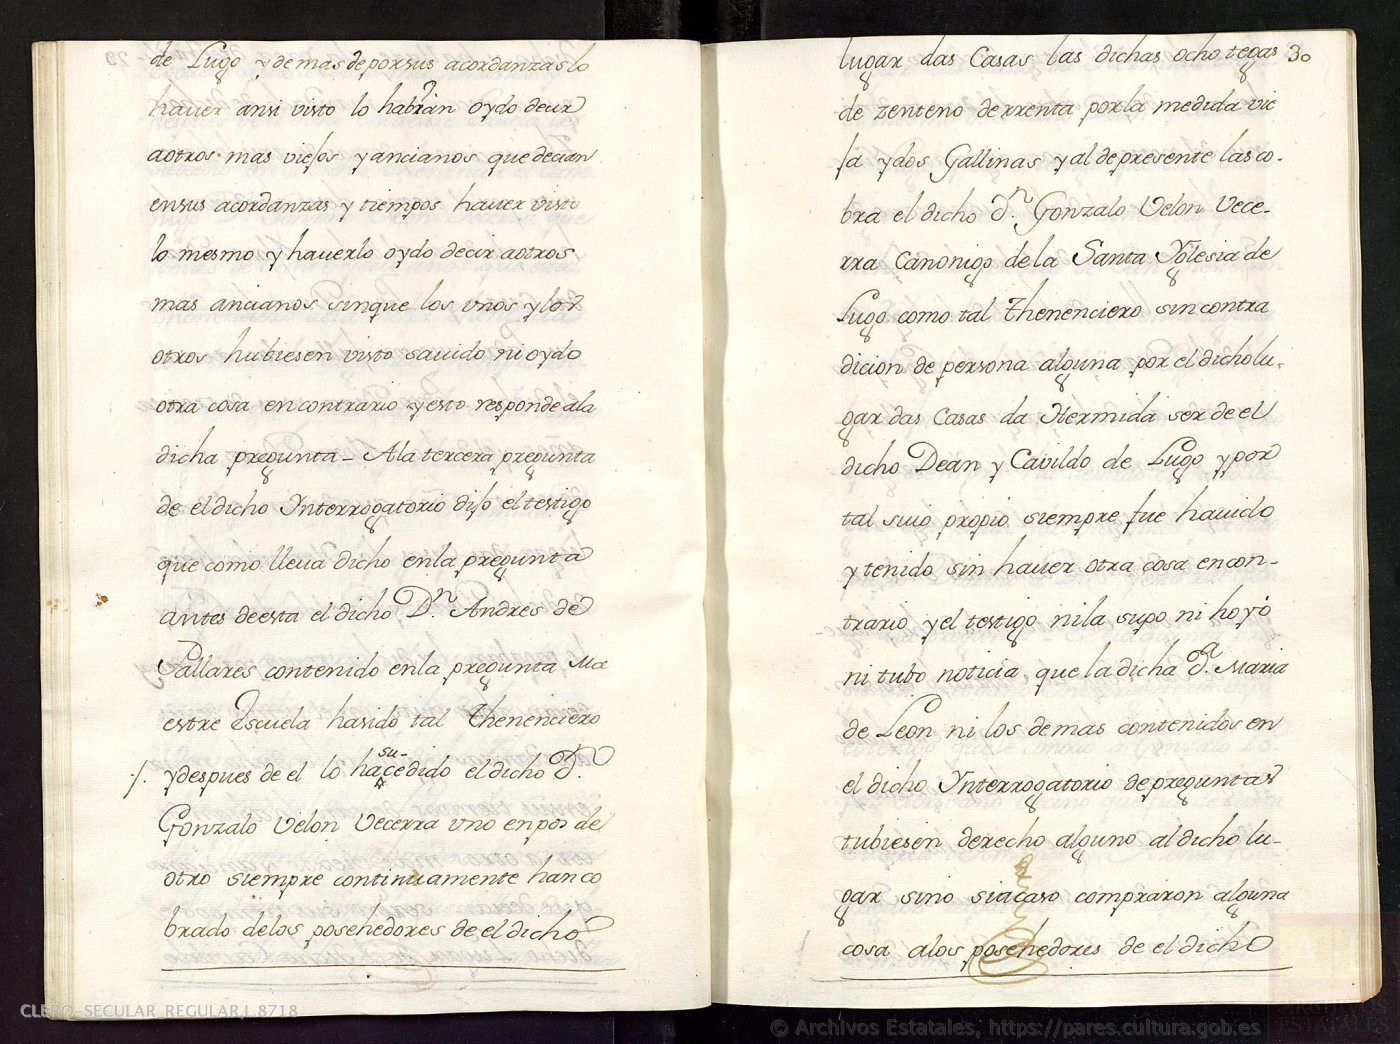 de Lugo y demas de por sus acordanzas lo
hauer ansi visto lo habian oydo decir
a otros mas viejos y ancianos que decian
en sus acordanzas y tiempos hauer visto
lo mesmo y hauerlo oydo decir a otros
mas ancianos sin que los vnos y los
otros hubiesen visto sauido ni oydo
otra cosa en contrario y esto responde a la
dicha pregunta – A la tercera pregunta
de el dicho Ynterrogatorio dijo el testigo
que como lleua dicho en la pregunta
antes de esta el dicho Dn. Andres de
Pallares contenido en la pregunta Ma
estre Escuela ha sido tal Thenenciero
./. y despues de el lo ha su- cedido el dicho D.
Gonzalo Velon Vecerra vno en pos de
otro siempre continuamente han co
brado de los posehedores de el dicho
30
lugar das Casas las dichas ocho tegas
de zenteno de rrenta por la medida vie
ja y dos Gallinas y al de presente las co-
bra el dicho Dn. Gonzalo Velon Vece-
rra Canonigo de la Santa Yglesia de
Lugo como tal Thenenciero sin contra
dicion de persona alguna por el dicho lu-
gar das Casas da Hermida ser de el
dicho Dean y Cavildo de Lugo y por
tal suio propio siempre fue hauido
y tenido sin hauer otra cosa en con-
trario y el testigo ni la supo ni hoyó
ni tubo noticia, que la dicha Da. Maria
de Leon ni los demas contenidos en
el dicho Ynterrogatorio de preguntas
tubiesen derecho alguno al dicho lu-
gar sino si acaso compraron alguna
cosa a los posehedores de el dicho
CLERO-SECULAR_REGULAR,L.8718
© Archivos Estatales, https://pares.cultura.gob.es
ARCHIVOS
ESTATALES